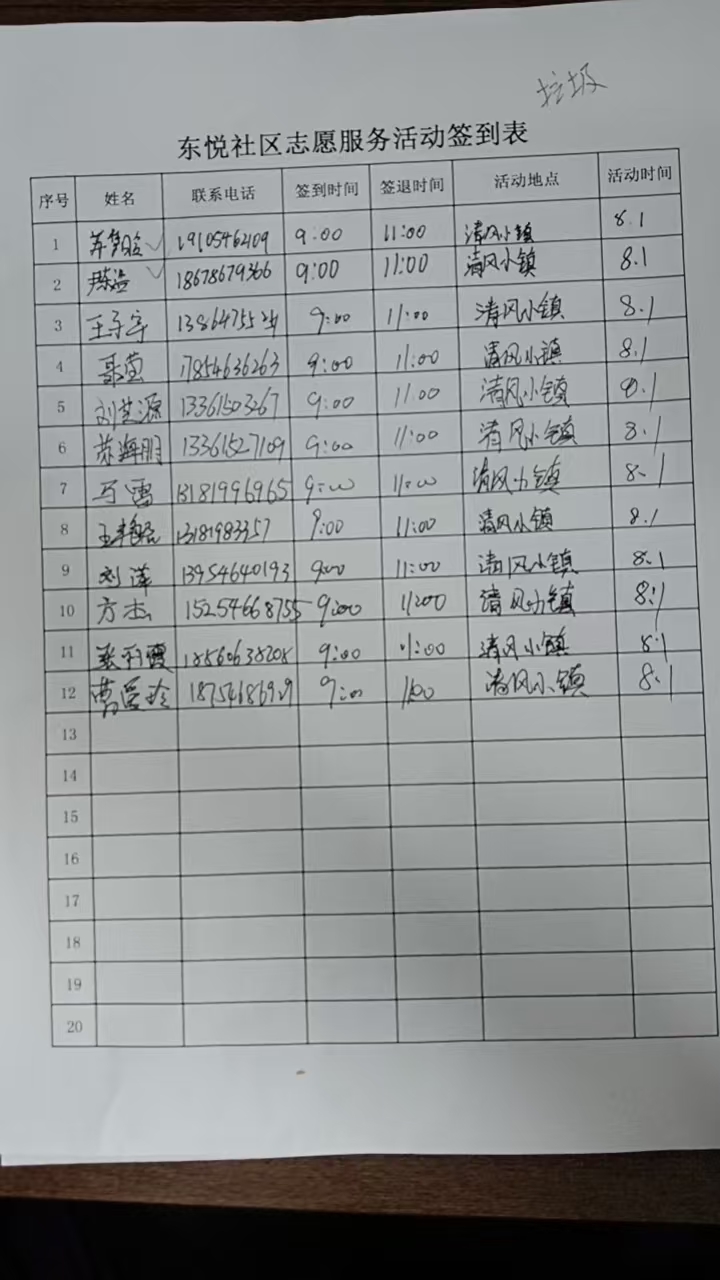 垃圾
东悦社区志愿服务活动签到表
序号 姓名 联系电话 签到时间 签退时间 活动地点 活动时间
1 19105462109 9:00 11:00 清风小镇 8.1
2 18678679366 9:00 11:00 清风小镇 8.1
3 王子宇 9:00 11:00 清风小镇 8.1
4 聂莹 17854636263 9:00 11:00 清风小镇 8.1
5 刘芝源 13361503267 9:00 11:00 清风小镇 8.1
6 苏海鹏 13361527109 9:00 11:00 清风小镇 8.1
7 马雷 13181996965 9:00 11:00 清风小镇 8.1
8 13181983357 9:00 11:00 清风小镇 8.1
9 刘洋 13954640193 9:00 11:00 清风小镇 8.1
10 方杰 15254668755 9:00 11:00 清风小镇 8.1
11 张利霞 18560638208 9:00 11:00 清风小镇 8.1
12 曹爱玲 9:00 11:00 清风小镇 8.1
13
14
15
16
17
18
19
20